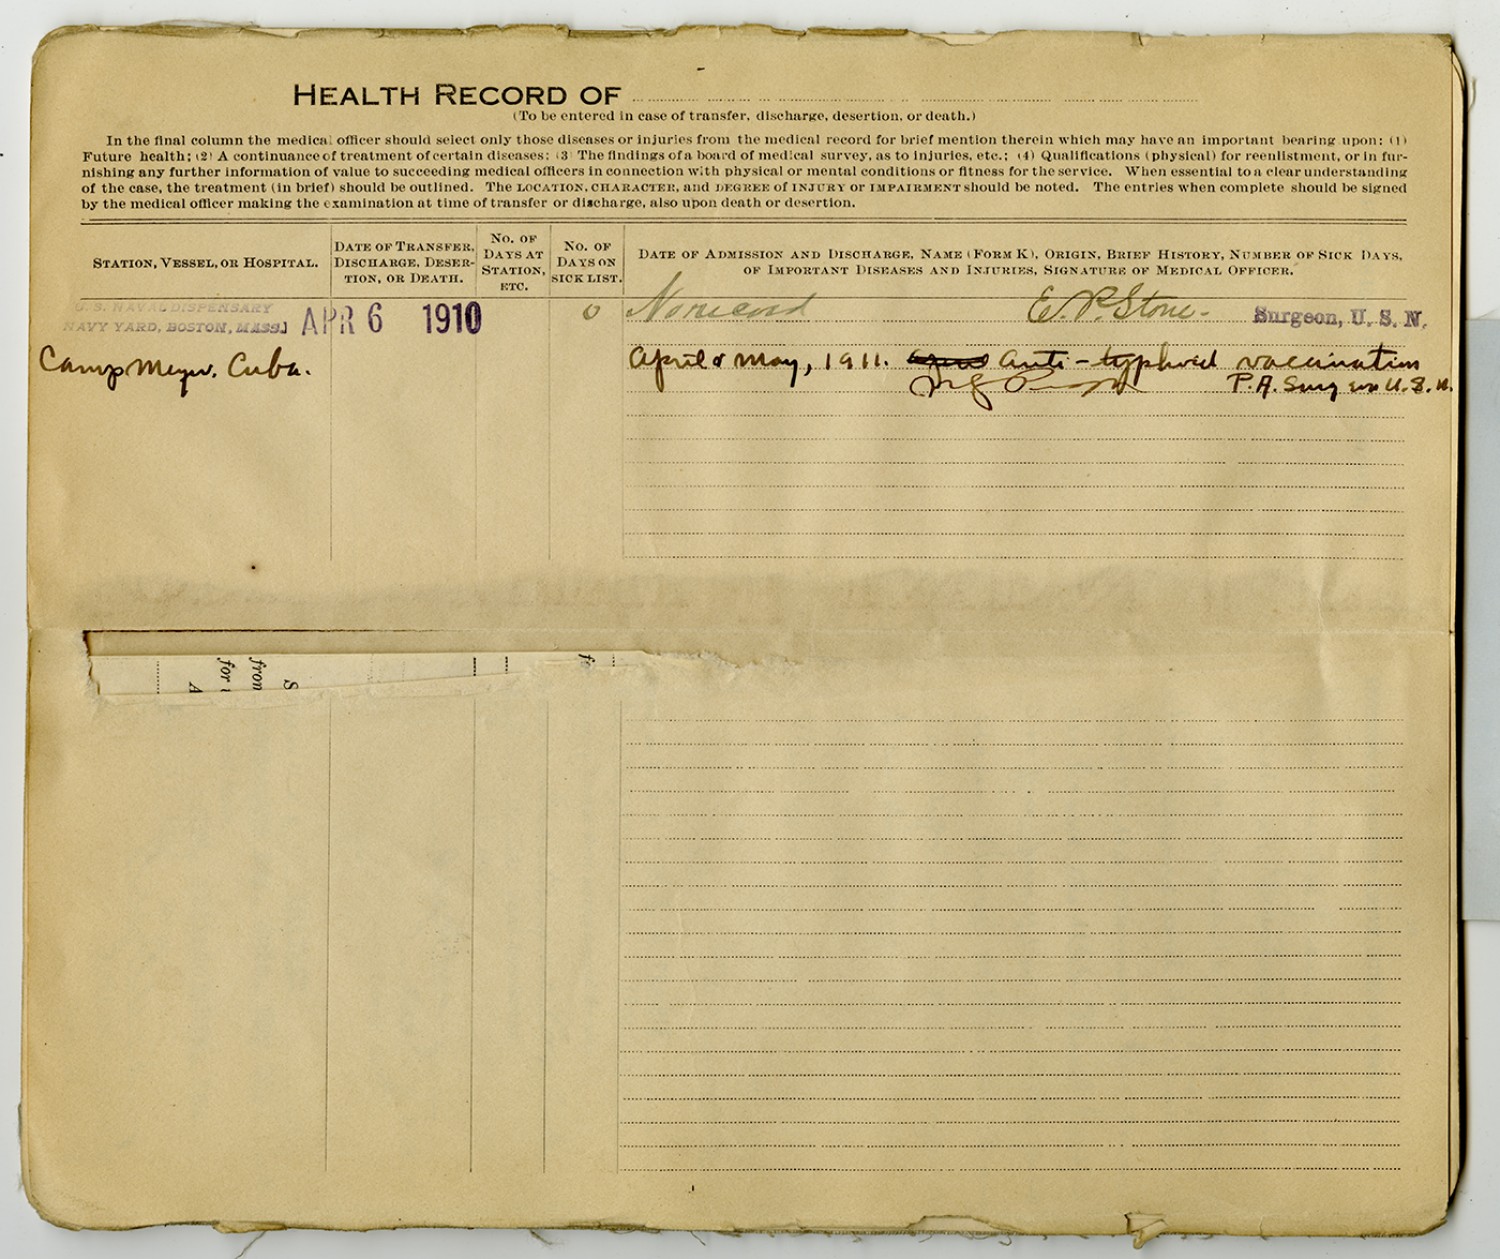 HEALTH RECORD OF
(To be entered in case of transfer, discharge, desertion, or death.)
In the final column the medical officer should select only those diseases or injuries from the medical record for brief mention therein which may have an important bearing upon: (1)
Future health; (2) A continuance of treatment of certain diseases; (3) The findings of a board of medical survey, as to injuries, etc.; (4) Qualifications (physical) for reenlistment, or in fur-
nishing any further information of value to succeeding medical officers in connection with physical or mental conditions or fitness for the service. When essential to a clear understanding
of the case, the treatment (in brief) should be outlined. The LOCATION, CHARACTER, and DEGREE of INJURY or IMPAIRMENT should be noted. The entries when complete should be signed
by the medical officer making the examination at time of transfer or discharge, also upon death or desertion.
STATION, VESSEL, OR HOSPITAL.
DATE OF TRANSFER,
DISCHARGE, DESER-
TION, OR DEATH.
NO. OF
DAYS AT
STATION,
ETC.
NO. OF
DAYS ON
SICK LIST.
DATE OF ADMISSION AND DISCHARGE, NAME (FORM K), ORIGIN, BRIEF HISTORY, NUMBER OF SICK DAYS,
OF IMPORTANT DISEASES AND INJURIES, SIGNATURE OF MEDICAL OFFICER.
U.S. NAVAL DISPENSARY
NAVY YARD, BOSTON, MASS.
APR 6 1910
0
No record E. P. Stone Surgeon, U. S. N.
Camp Meyer, Cuba.
April & May, 1911. Anti-typhoid vaccination
P. A. Surgeon U. S. N.
S
from
for
A
f